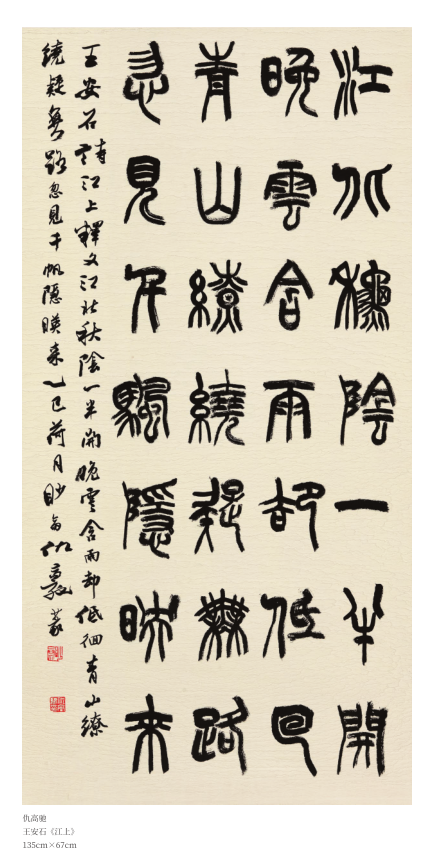 江北穐陰一半開
晚雲含雨却低回
青山繚繞疑無路
忽見千颿隱映来
王安石詩江上釋文江北秋陰一半開晚雲含雨却低徊青山繚
繞疑無路忽見千帆隱暎来乙巳荷月
仇高驰
王安石《江上》
135cm×67cm